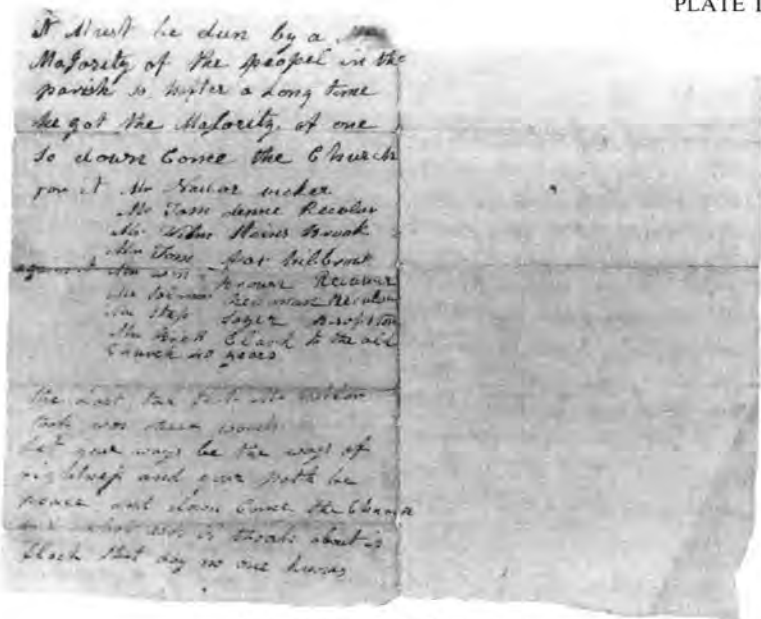 PLATE I
it Must be dun by a
Majority of the peopel in the
parish so hafter a Long time
he got the Majority of one
So down Come the Church
for it Mr Nailor vicker
Mr Tom denne Reculver
Mr Brook
Mr Tom hilbrow
against it Mr brown Reculver
Mr newman Reculver
Mr Step Sayer
Mr Clark to the old
Church 40 years
the Last tex that Mr
took was these words
Let your ways be the ways of
rightness and your path be
peace and down Come the Church
and what was is thoats about is
flock that day no one knows